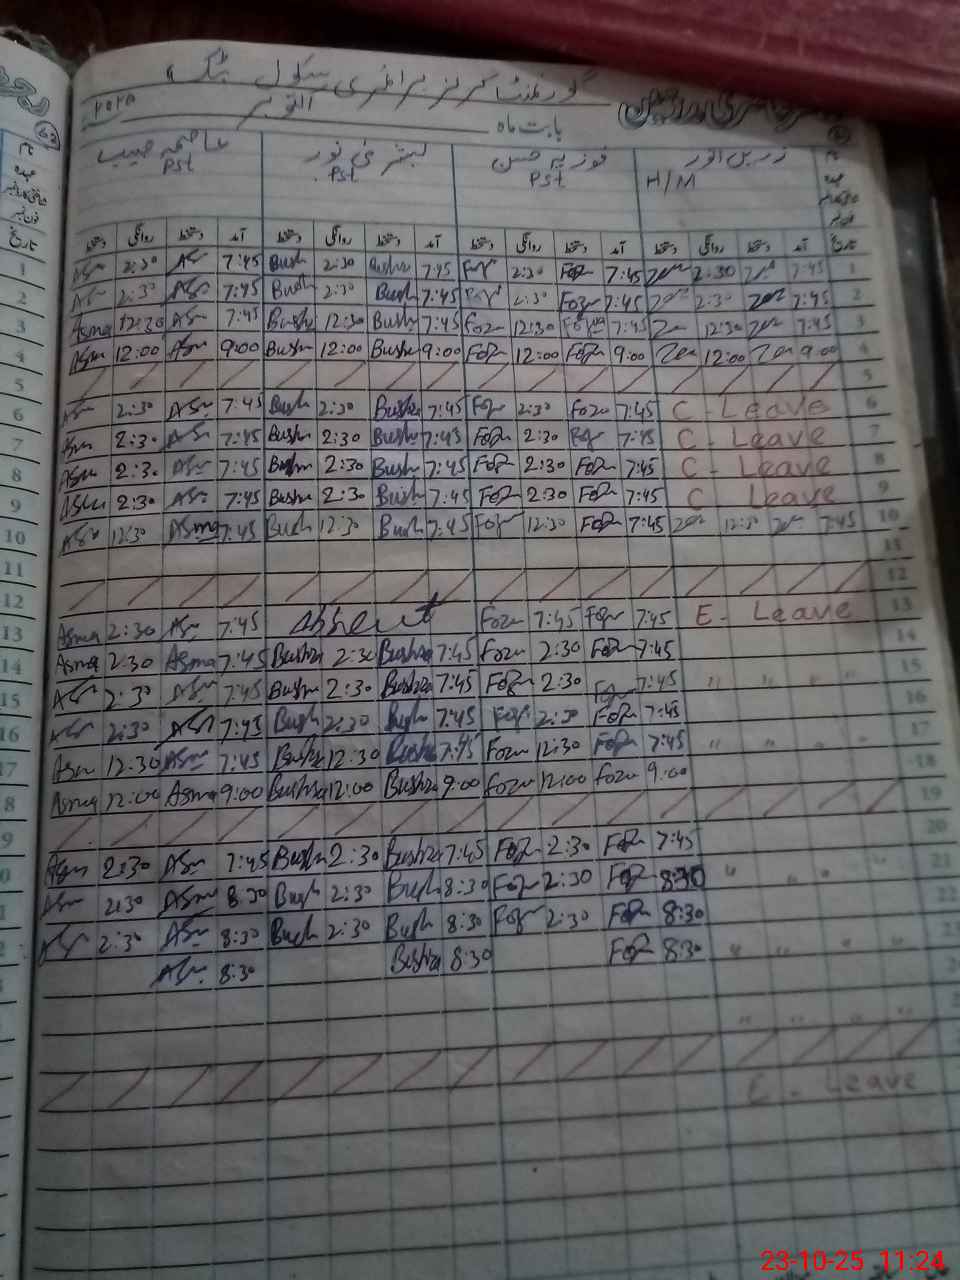 گورنمنٹ گرلز پرائمری سکول
بابت ماہ اکتوبر ۲۰۲۵
زرین انور فوزیہ حسن بشریٰ نور عاصمہ حبیب
H/M Pst Pst Pst
تاریخ آمد دستخط روانگی دستخط آمد دستخط روانگی دستخط آمد دستخط روانگی دستخط آمد دستخط روانگی دستخط
1 Asm 2:30 Asm 7:45 Bush 2:30 Bushra 7:45 Foz 2:30 Foz 7:45 Zar 2:30 Zar 7:45 1
2 Asm 2:30 Asm 7:45 Bush 2:30 Bush 7:45 Foz 2:30 Foz 7:45 Zar 2:30 Zar 7:45 2
3 Asma 12:30 Asm 7:45 Bushr 12:30 Bushr 7:45 Foz 12:30 Foz 7:45 Zar 12:30 Zar 7:45 3
4 Asm 12:00 Asm 9:00 Bushr 12:00 Bushr 9:00 Foz 12:00 Foz 9:00 Zar 12:00 Zar 9:00 4
5 5
6 Asm 2:30 Asm 7:45 Bush 2:30 Bushra 7:45 Foz 2:30 Foz 7:45 C - Leave 6
7 Asm 2:30 Asm 7:45 Bushr 2:30 Bushr 7:45 Foz 2:30 Foz 7:45 C - Leave 7
8 Asm 2:30 Asm 7:45 Bushr 2:30 Bush 7:45 Foz 2:30 Foz 7:45 C - Leave 8
9 Asm 2:30 Asm 7:45 Bushr 2:30 Bush 7:45 Foz 2:30 Foz 7:45 C Leave 9
10 Asm 12:30 Asma 7:45 Bush 12:30 Bush 7:45 Foz 12:30 Foz 7:45 Zar 12:30 Zar 7:45 10
11 11
12 12
13 Asma 2:30 Asm 7:45 Absent Foz 7:45 Foz 7:45 E - Leave 13
14 Asma 2:30 Asma 7:45 Bushra 2:30 Bushra 7:45 Foz 2:30 Foz 7:45 14
15 Asm 2:30 Asm 7:45 Bushr 2:30 Bushra 7:45 Foz 2:30 Foz 7:45 " " " " 15
16 Asm 2:30 Asm 7:45 Bush 2:30 Bush 7:45 Foz 2:30 Foz 7:45 16
17 Asm 12:30 Asm 7:45 Bushra 12:30 Bushra 7:45 Foz 12:30 Foz 7:45 " " " " 17
8 Asma 12:00 Asma 9:00 Bushra 12:00 Bushra 9:00 Foz 12:00 Foz 9:00 18
9 19
0 Asm 2:30 Asm 7:45 Bushra 2:30 Bushra 7:45 Foz 2:30 Foz 7:45 20
1 Asm 2:30 Asm 8:30 Bush 2:30 Bush 8:30 Foz 2:30 Foz 8:30 " " " " 21
2 Asm 2:30 Asm 8:30 Bush 2:30 Bush 8:30 Foz 2:30 Foz 8:30 22
Asm 8:30 Bushra 8:30 Foz 8:30 " " " "
" " " "
E - Leave
23-10-25 11:24